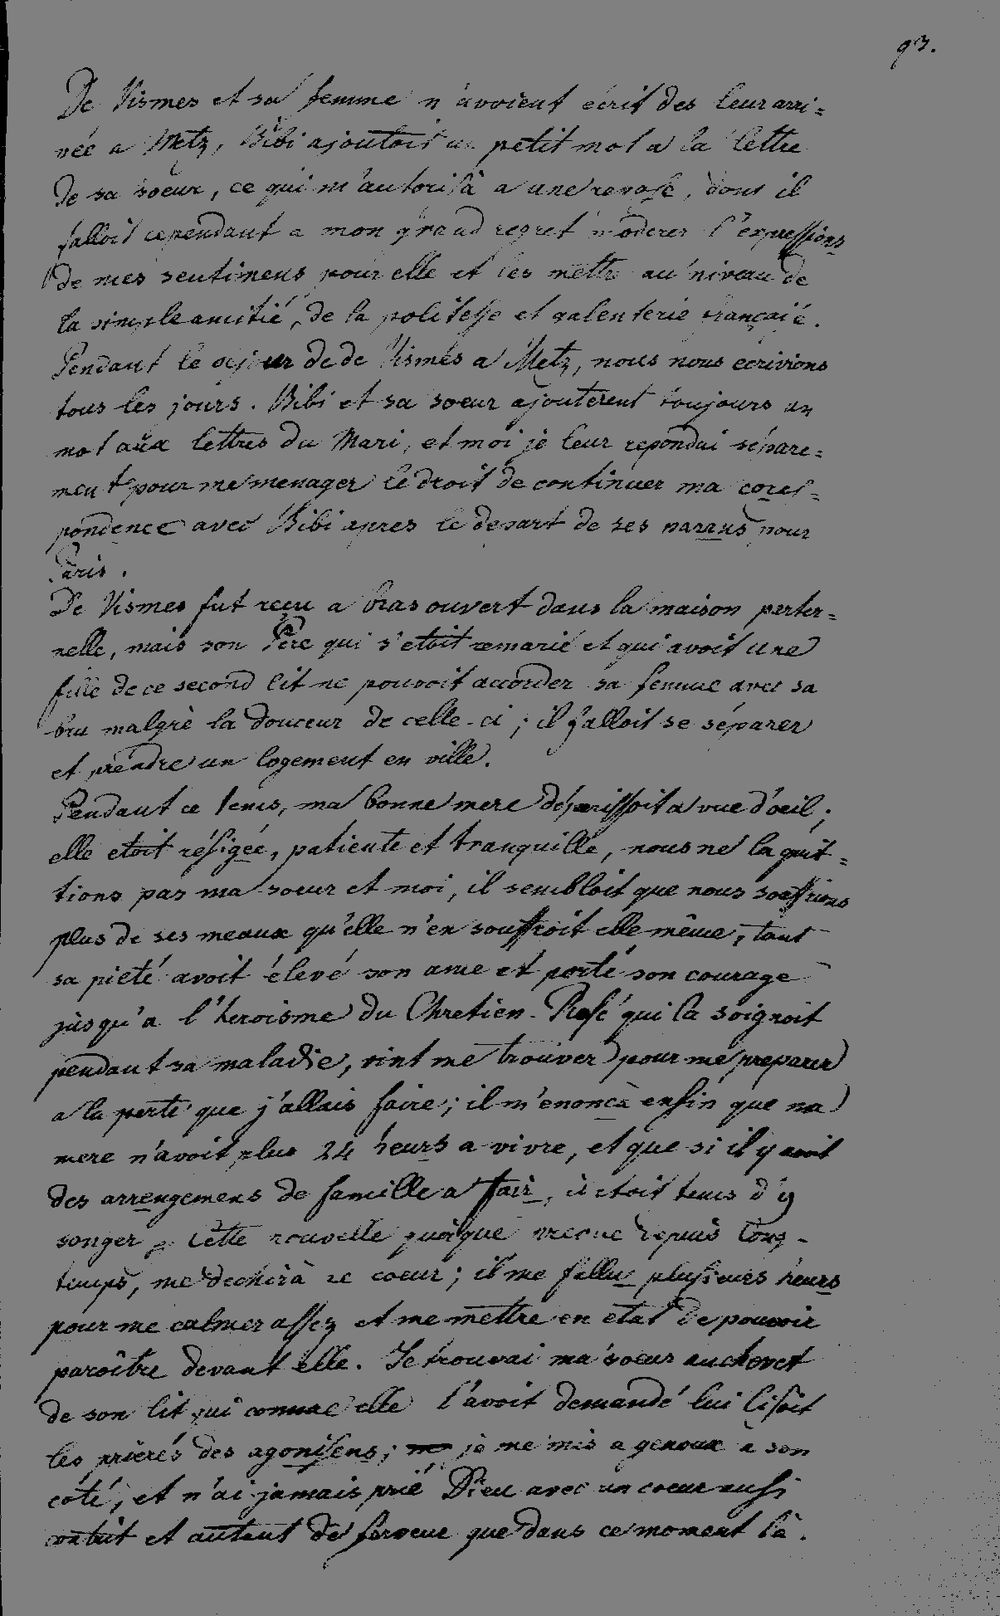 93.
De Vismes et sa femme n'avoient écrit des leur arri=
veé a Metz, Bibi ajoutoit un petit mot a la lettre
de sa soeur, ce qui m'autorisà a une reponse, dont il
falloit cependant a mon grand regret moderer l'expressions
de mes sentimens pour elle et les mettre au niveau de
la simple amitié, de la politesse et galenterie françaie.
Pendant le sejour de de Vismes a Metz, nous nous ecrivions
tous les jours. Bibi et sa soeur ajouterent toujours un
mot aux lettres du Mari, et moi je leur repondai separe=
ment pour me menager le droit de continuer ma cores=
pondence avec Bibi apres le depart de ses parans pour
Paris.
De Vismes fut reçu a bras ouvert dans la maison perter=
nelle, mais son Père qui s'etoit remarié et qui avoit une
fille de ce second lit ne pouvoit accorder sa femme avec sa
bru malgrè la douceur de celle-ci; il falloit se séparer
et prendre un logement en ville.
Pendant ce tems, ma bonne mere déperissoit a vue d'oeil;
elle etoit résigée, patiente et tranquille, nous ne la quit=
tions pas ma soeur et moi, il sembloit que nous soeffrions
plus de ses meaux qu'elle n'en souffroit elle même, tant
sa pieté avoit élevé son ame et porté son courage
jusqu'a l'heroisme du Chretien. Rosé qui la soignoit
pendant sa maladie, vint me trouver pour me preparer
a la perte que j'allais faire; il m'enonçà enfin que ma
mere n'avoit plus 24 heurs a vivre, et que si il y avoit
des arrengemens de famille a fair, il etoit tems d'y
songer. Cette nouvelle quoique prevue depuis long-
temps, me dechirà le coeur; il me fallu plusieurs heurs
pour me calmer assez et me mettre en etat de pouvoir
paroître devant elle. Je trouvai ma soeur au chevet
de son lit qui comme elle l'avoit demandé lui lisoit
les prierés des agonisens; je me mis a genoux à son
côté, et n'ai jamais prié Dieu avec un coeur ausi
contrit et autant de ferveur que dans ce moment là.